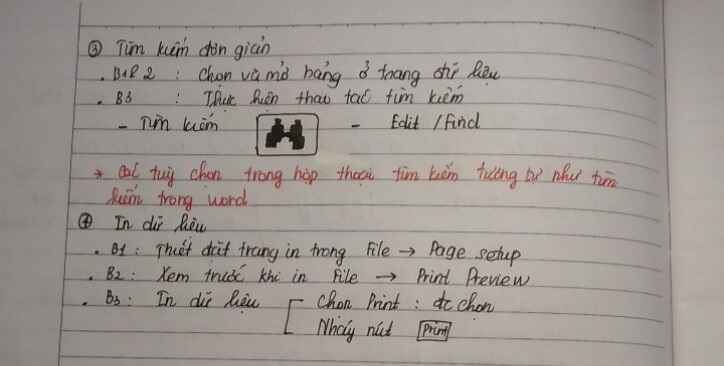 ③ Tìm kiếm đơn giản
. B1&2 : Chọn và mở bảng ở trang dữ liệu
. B3 : Thực hiện thao tác tìm kiếm
- Tìm kiếm - Edit / Find
→ Các tuỳ chọn trong hộp thoại tìm kiếm tương tự như tìm
kiếm trong word
④ In dữ liệu
. B1 : Thiết đặt trang in trong File → Page setup
. B2 : Xem trước khi in File → Print Preview
. B3 : In dữ liệu Chọn Print : đc chọn
Nháy nút Print